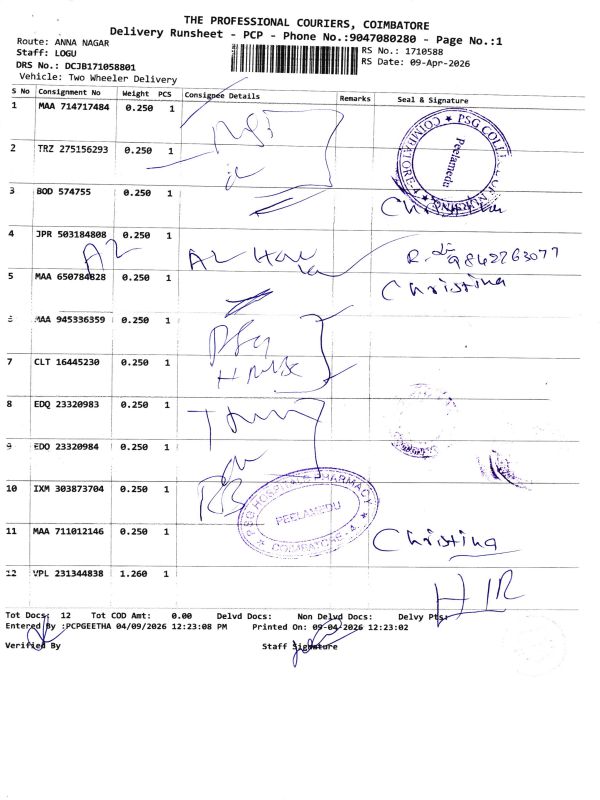 THE PROFESSIONAL COURIERS, COIMBATORE
Delivery Runsheet - PCP - Phone No.:9047080280 - Page No.:1
Route: ANNA NAGAR
Staff: LOGU
DRS No.: DCJB171058801
Vehicle: Two Wheeler Delivery
RS No.: 1710588
RS Date: 09-Apr-2026
S No Consignment No Weight PCS Consignee Details Remarks Seal & Signature
1 MAA 714717484 0.250 1
PSG COLLEGE OF NURSING
Peelamedu
COIMBATORE-4
2 TRZ 275156293 0.250 1
3 BOD 574755 0.250 1
Christina
4 JPR 503184808 0.250 1
9842263077
5 MAA 650784828 0.250 1
Christina
6 MAA 945336359 0.250 1
7 CLT 16445230 0.250 1
8 EDQ 23320983 0.250 1
9 EDO 23320984 0.250 1
10 IXM 303873704 0.250 1
PSG HOSPITALS PHARMACY
PEELAMEDU
COIMBATORE - 4
11 MAA 711012146 0.250 1
Christina
12 VPL 231344838 1.260 1
Tot Docs: 12 Tot COD Amt: 0.00 Delvd Docs: Non Delvd Docs: Delvy Pts:
Entered By :PCPGEETHA 04/09/2026 12:23:08 PM Printed On: 09-04-2026 12:23:02
Verified By Staff Signature